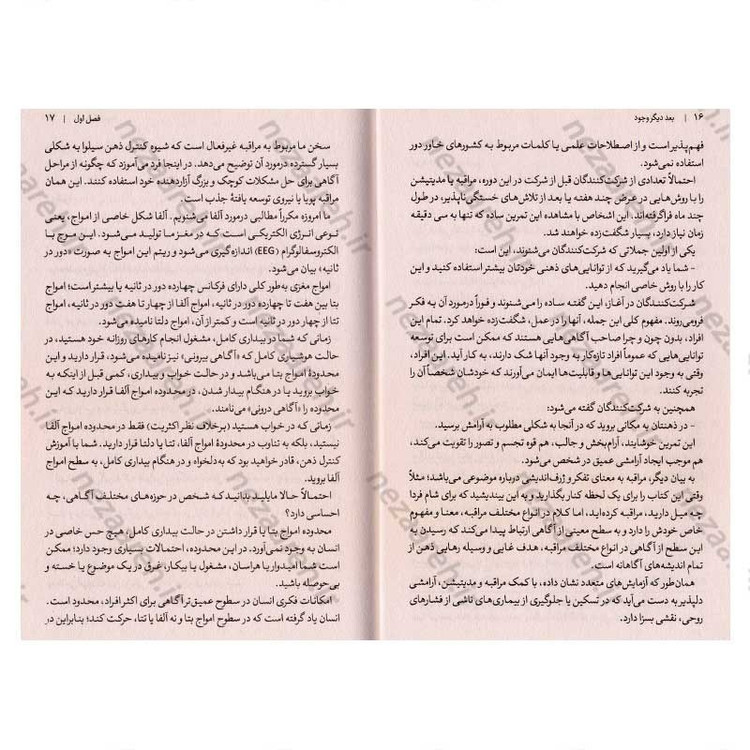 ۱۶ | بعد دیگر وجود
فهم‌پذیر است و از اصطلاحات علمی یا کلمات مربوط به کشورهای خاور دور
استفاده نمی‌شود.
احتمالاً تعدادی از شرکت‌کنندگان قبل از شرکت در این دوره، مراقبه یا مدیتیشن
را با روش‌هایی در عرض چند هفته یا بعد از تلاش‌های خستگی‌ناپذیر، در طول
چند ماه فراگرفته‌اند. این اشخاص با مشاهده این تمرین ساده که تنها به سی دقیقه
زمان نیاز دارد، بسیار شگفت‌زده می‌شوند.
یکی از اولین جملاتی که شرکت‌کنندگان می‌شنوند، این است:
- شما یاد می‌گیرید که از توانایی‌های ذهنی خودتان بیشتر استفاده کنید و این
کار را با روش خاصی انجام دهید.
شرکت‌کنندگان در آغاز، این گفته ساده را می‌شنوند و فوراً درمورد آن به فکر
فرومی‌روند. مفهوم کلی این جمله، آنها را در عمل، شگفت‌زده خواهد کرد. تمام این
افراد، بدون چون و چرا صاحب آگاهی‌هایی هستند که ممکن است برای توسعه
توانایی‌هایی که عموماً افراد تازه‌کار به وجود آنها شک دارند، به کار آید. این افراد،
وقتی به وجود این توانایی‌ها و قابلیت‌ها ایمان می‌آورند که خودشان شخصاً آن را
تجربه کنند.
همچنین به شرکت‌کنندگان گفته می‌شود:
- در ذهنتان به مکانی بروید که در آنجا به شکلی مطلوب به آرامش برسید.
این تمرین خوشایند، آرام‌بخش و جالب، هم قوه تجسم و تصور را تقویت می‌کند،
هم موجب ایجاد آرامشی عمیق در شخص می‌شود.
به بیان دیگر، مراقبه به معنای تفکر و ژرف‌اندیشی درباره موضوعی می‌باشد؛ مثلاً
وقتی این کتاب را برای یک لحظه کنار بگذارید و به این بیندیشید که برای شام فردا
چه میل دارید، مراقبه کرده‌اید، اما کلام در انواع مختلف مراقبه، معنا و مفهوم
خاص خودش را دارد و به سطح معینی از آگاهی ارتباط پیدا می‌کند که رسیدن به
این سطح از آگاهی در انواع مختلف مراقبه، هدف غایی و وسیله رهایی ذهن از
تمام اندیشه‌های آگاهانه است.
همان‌طور که آزمایش‌های متعدد نشان داده، با کمک مراقبه و مدیتیشن، آرامشی
دلپذیر به دست می‌آید که در تسکین یا جلوگیری از بیماری‌های ناشی از فشارهای
روحی، نقشی بسزا دارد.
فصل اول | ۱۷
سخن ما مربوط به مراقبه غیرفعال است که شیوه کنترل ذهن سیلوا به شکلی
بسیار گسترده درمورد آن توضیح می‌دهد. در اینجا فرد می‌آموزد که چگونه از مراحل
آگاهی برای حل مشکلات کوچک و بزرگ آزاردهنده خود استفاده کنند. این همان
مراقبه پویا با نیروی توسعه یافتهٔ جذب است.
ما امروزه مکرراً مطالبی درمورد آلفا می‌شنویم. آلفا شکل خاصی از امواج، یعنی
نوعی انرژی الکتریکی است که در مغز ما تولید می‌شود. این موج با
الکتروسفالوگرام (EEG) اندازه‌گیری می‌شود و ریتم این امواج به صورت «دور در
ثانیه» بیان می‌شود.
امواج مغزی به‌طور کلی دارای فرکانس چهارده دور در ثانیه یا بیشتر است؛ امواج
بتا بین هفت تا چهارده دور در ثانیه، امواج آلفا از چهار تا هفت دور در ثانیه، امواج
تتا از چهار دور در ثانیه است و کمتر از آن، امواج دلتا نامیده می‌شود.
زمانی که شما در بیداری کامل، مشغول انجام کارهای روزانه خود هستید، در
حالت هوشیاری کامل که «آگاهی بیرونی» نیز نامیده می‌شود، قرار دارید و این
محدودهٔ امواج بتا می‌باشد و در حالت خواب و بیداری، کمی قبل از اینکه به
خواب بروید یا در هنگام بیدار شدن، در محدوده امواج آلفا قرار دارید که این
محدوده را «آگاهی درونی» می‌نامند.
زمانی که در خواب هستید (برخلاف نظر اکثریت) فقط در محدوده امواج آلفا
نیستید، بلکه به تناوب در محدودهٔ امواج آلفا، تتا یا دلتا قرار دارید. شما با آموزش
کنترل ذهن، قادر خواهید بود که به‌دلخواه و در هنگام بیداری کامل، به سطح امواج
آلفا بروید.
احتمالاً حالا مایلید بدانید که شخص در حوزه‌های مختلف آگاهی، چه
احساسی دارد؟
محدوده امواج بتا یا قرار داشتن در حالت بیداری کامل، هیچ حس خاصی در
انسان به وجود نمی‌آورد. در این محدوده، احتمالات بسیاری وجود دارد؛ ممکن
است شما امیدوار یا هراسان، مشغول یا بیکار، غرق در یک موضوع یا خسته و
بی‌حوصله باشید.
امکانات فکری انسان در سطوح عمیق‌تر آگاهی برای اکثر افراد، محدود است.
انسان یاد گرفته است که در سطوح امواج بتا و نه آلفا یا تتا، حرکت کند؛ بنابراین در
nezareh.ir